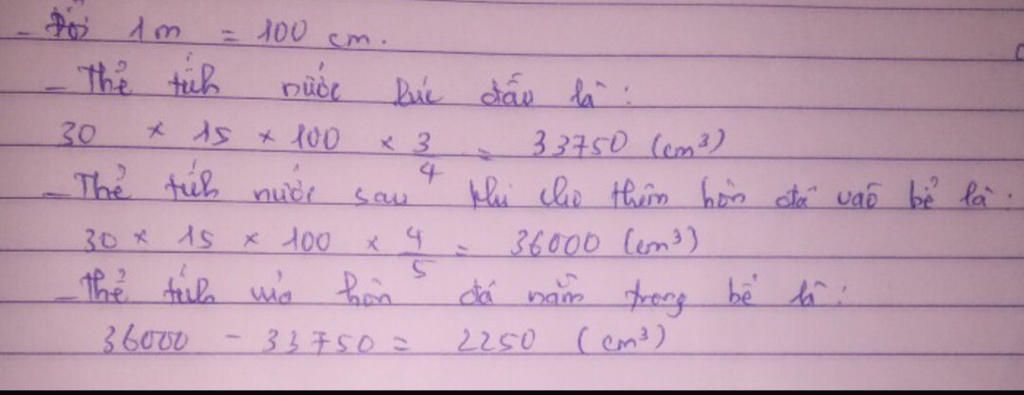 - Đổi 1m = 100 cm.
- Thể tích nước lúc đầu là :
30 × 15 × 100 × 3/4 = 33750 (cm³)
- Thể tích nước sau khi cho thêm hòn đá vào bể là :
30 × 15 × 100 × 4/5 = 36000 (cm³)
- Thể tích của hòn đá nằm trong bể là :
36000 - 33750 = 2250 (cm³)